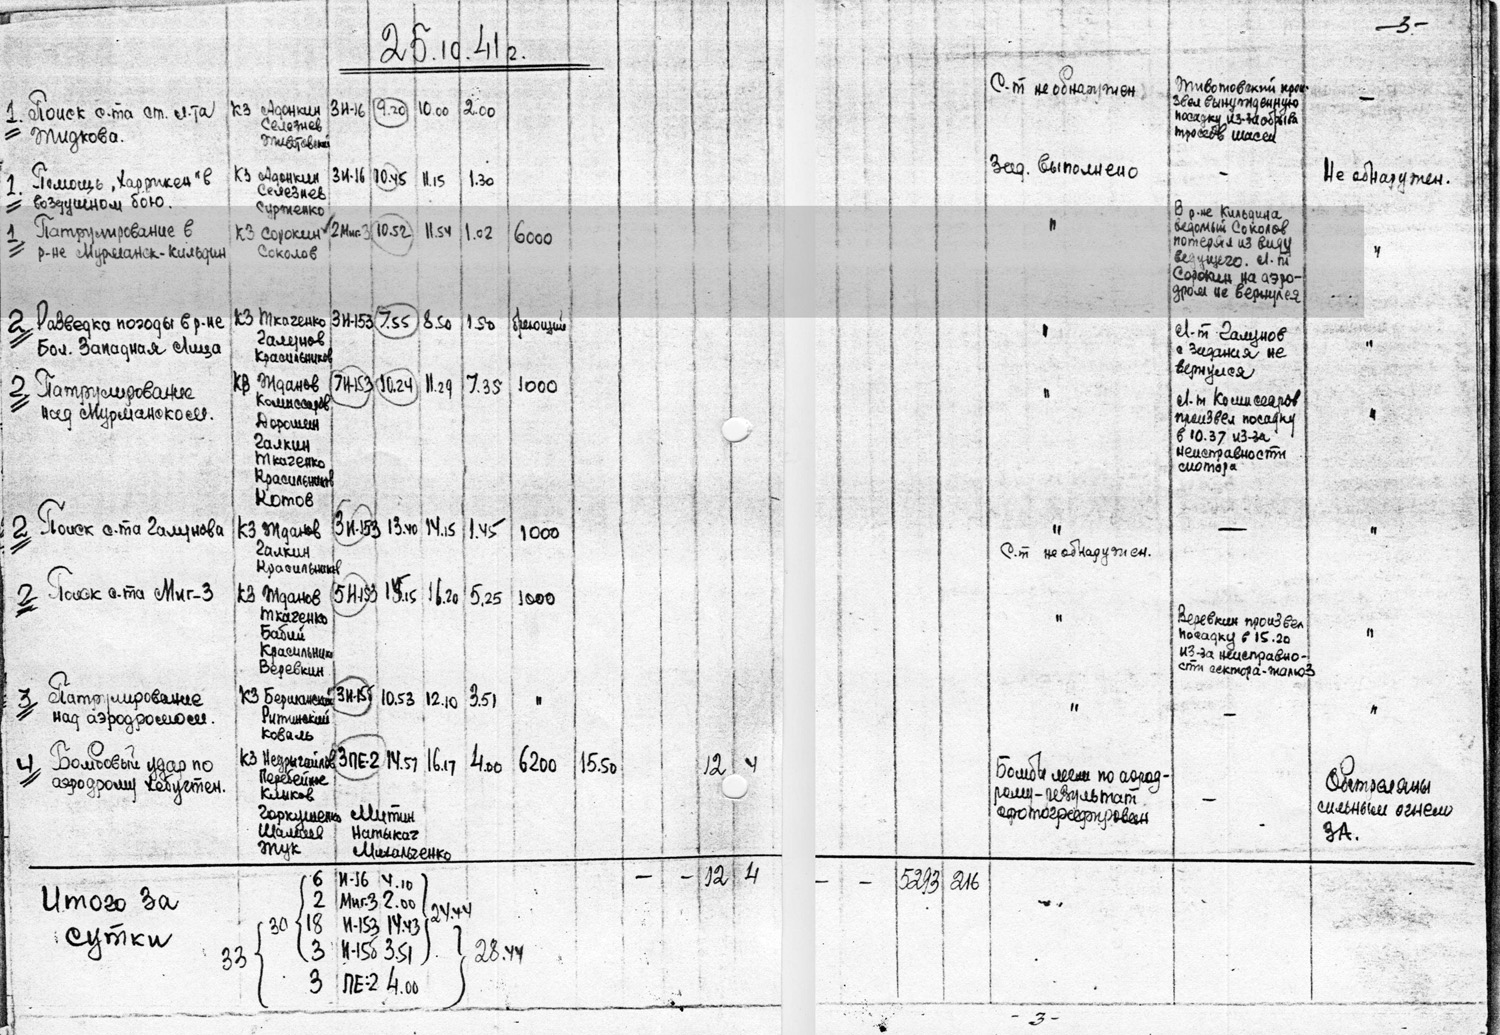 25.10.41 г.
-3-
1. Поиск с-та ст. л-та КЗ Адонкин 3И-16 9.20 10.00 2.00 С-т не обнаружен Животовский прои- —
Жидкова. Селезнев звел вынужденную
Животовский посадку из-за обрыва
тросов шасси
1. Помощь „Харрикен" в КЗ Адонкин 3И-16 10.45 11.15 1.30 Зад. выполнено - Не обнаружен.
воздушном бою. Селезнев
Сурженко
1 Патрулирование в КЗ Сорокин 2Миг-3 10.52 11.54 1.02 6000 " В р-не Кильдина "
р-не Мурманск-Кильдин Соколов ведомый Соколов
потерял из виду
ведущего. Л-т
Сорокин на аэро-
дром не вернулся
2 Разведка погоды в р-не КЗ Ткаченко 3И-153 7.55 8.50 1.50 бреющий " Л-т Галунов "
Бол. Западная Лица Галунов с задания не
Красильников вернулся
2 Патрулирование КВ Жданов 7И-153 10.24 11.29 7.35 1000 " Л-т Комиссаров "
над Мурманском. Комиссаров произвел посадку
Дорошин в 10.37 из-за
Галкин неисправности
Ткаченко мотора
Красильников
Котов
2 Поиск с-та Галунова КЗ Жданов 3И-153 13.40 14.15 1.45 1000 " — "
Галкин С-т не обнаружен.
Красильников
2 Поиск с-та Миг-3 КЗ Жданов 5И-153 15.15 16.20 5.25 1000 " Веревкин произвел "
Ткаченко посадку в 15.20
Бабий из-за неисправно-
Красильник сти сектора-
Веревкин
3 Патрулирование КЗ 3И-15б 10.53 12.10 3.51 " " - "
над аэродромом.
Коваль
4 Бомбовый удар по КЗ Недрыгайлов 3ПЕ-2 14.57 16.17 4.00 6200 15.50 12 4 Бомбы легли по аэрод- - Обстреляны
аэродрому Хебуктен. Перебейнс рому-результат сильным огнем
Клыков сфотографирован ЗА.
Горкушенко Митин
Натыкач
Жук Михальченко
Итого за 6 И-16 4.10 - - 12 4 - - 5293 216
сутки 2 Миг-3 2.00
33 30 18 И-153 14.43 24.44
3 И-15б 3.51 28.44
3 ПЕ-2 4.00
-3-